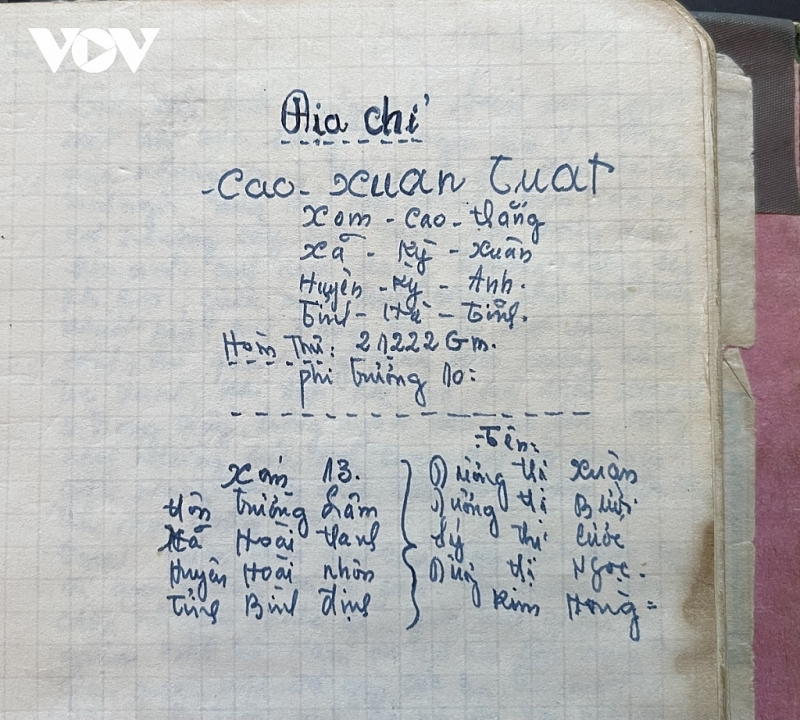 VOV
Địa chỉ
- Cao - Xuân Tuat
Xom - Cao - thắng
Xã - Kỳ - Xuân
Huyện - Kỳ - Anh.
Tỉnh - Hà - Tĩnh.
Hòm Thư: 21222 Gm.
phi trường 10:
Tên:
Xóm 13.
thôn trường Lâm
Xã Hoài thanh
Huyện Hoài nhơn
Tỉnh Bình định
Dương thị Xuân
Dương thị Bưởi
Lý thị Cước
thị Ngọc.
Kim Hồng =